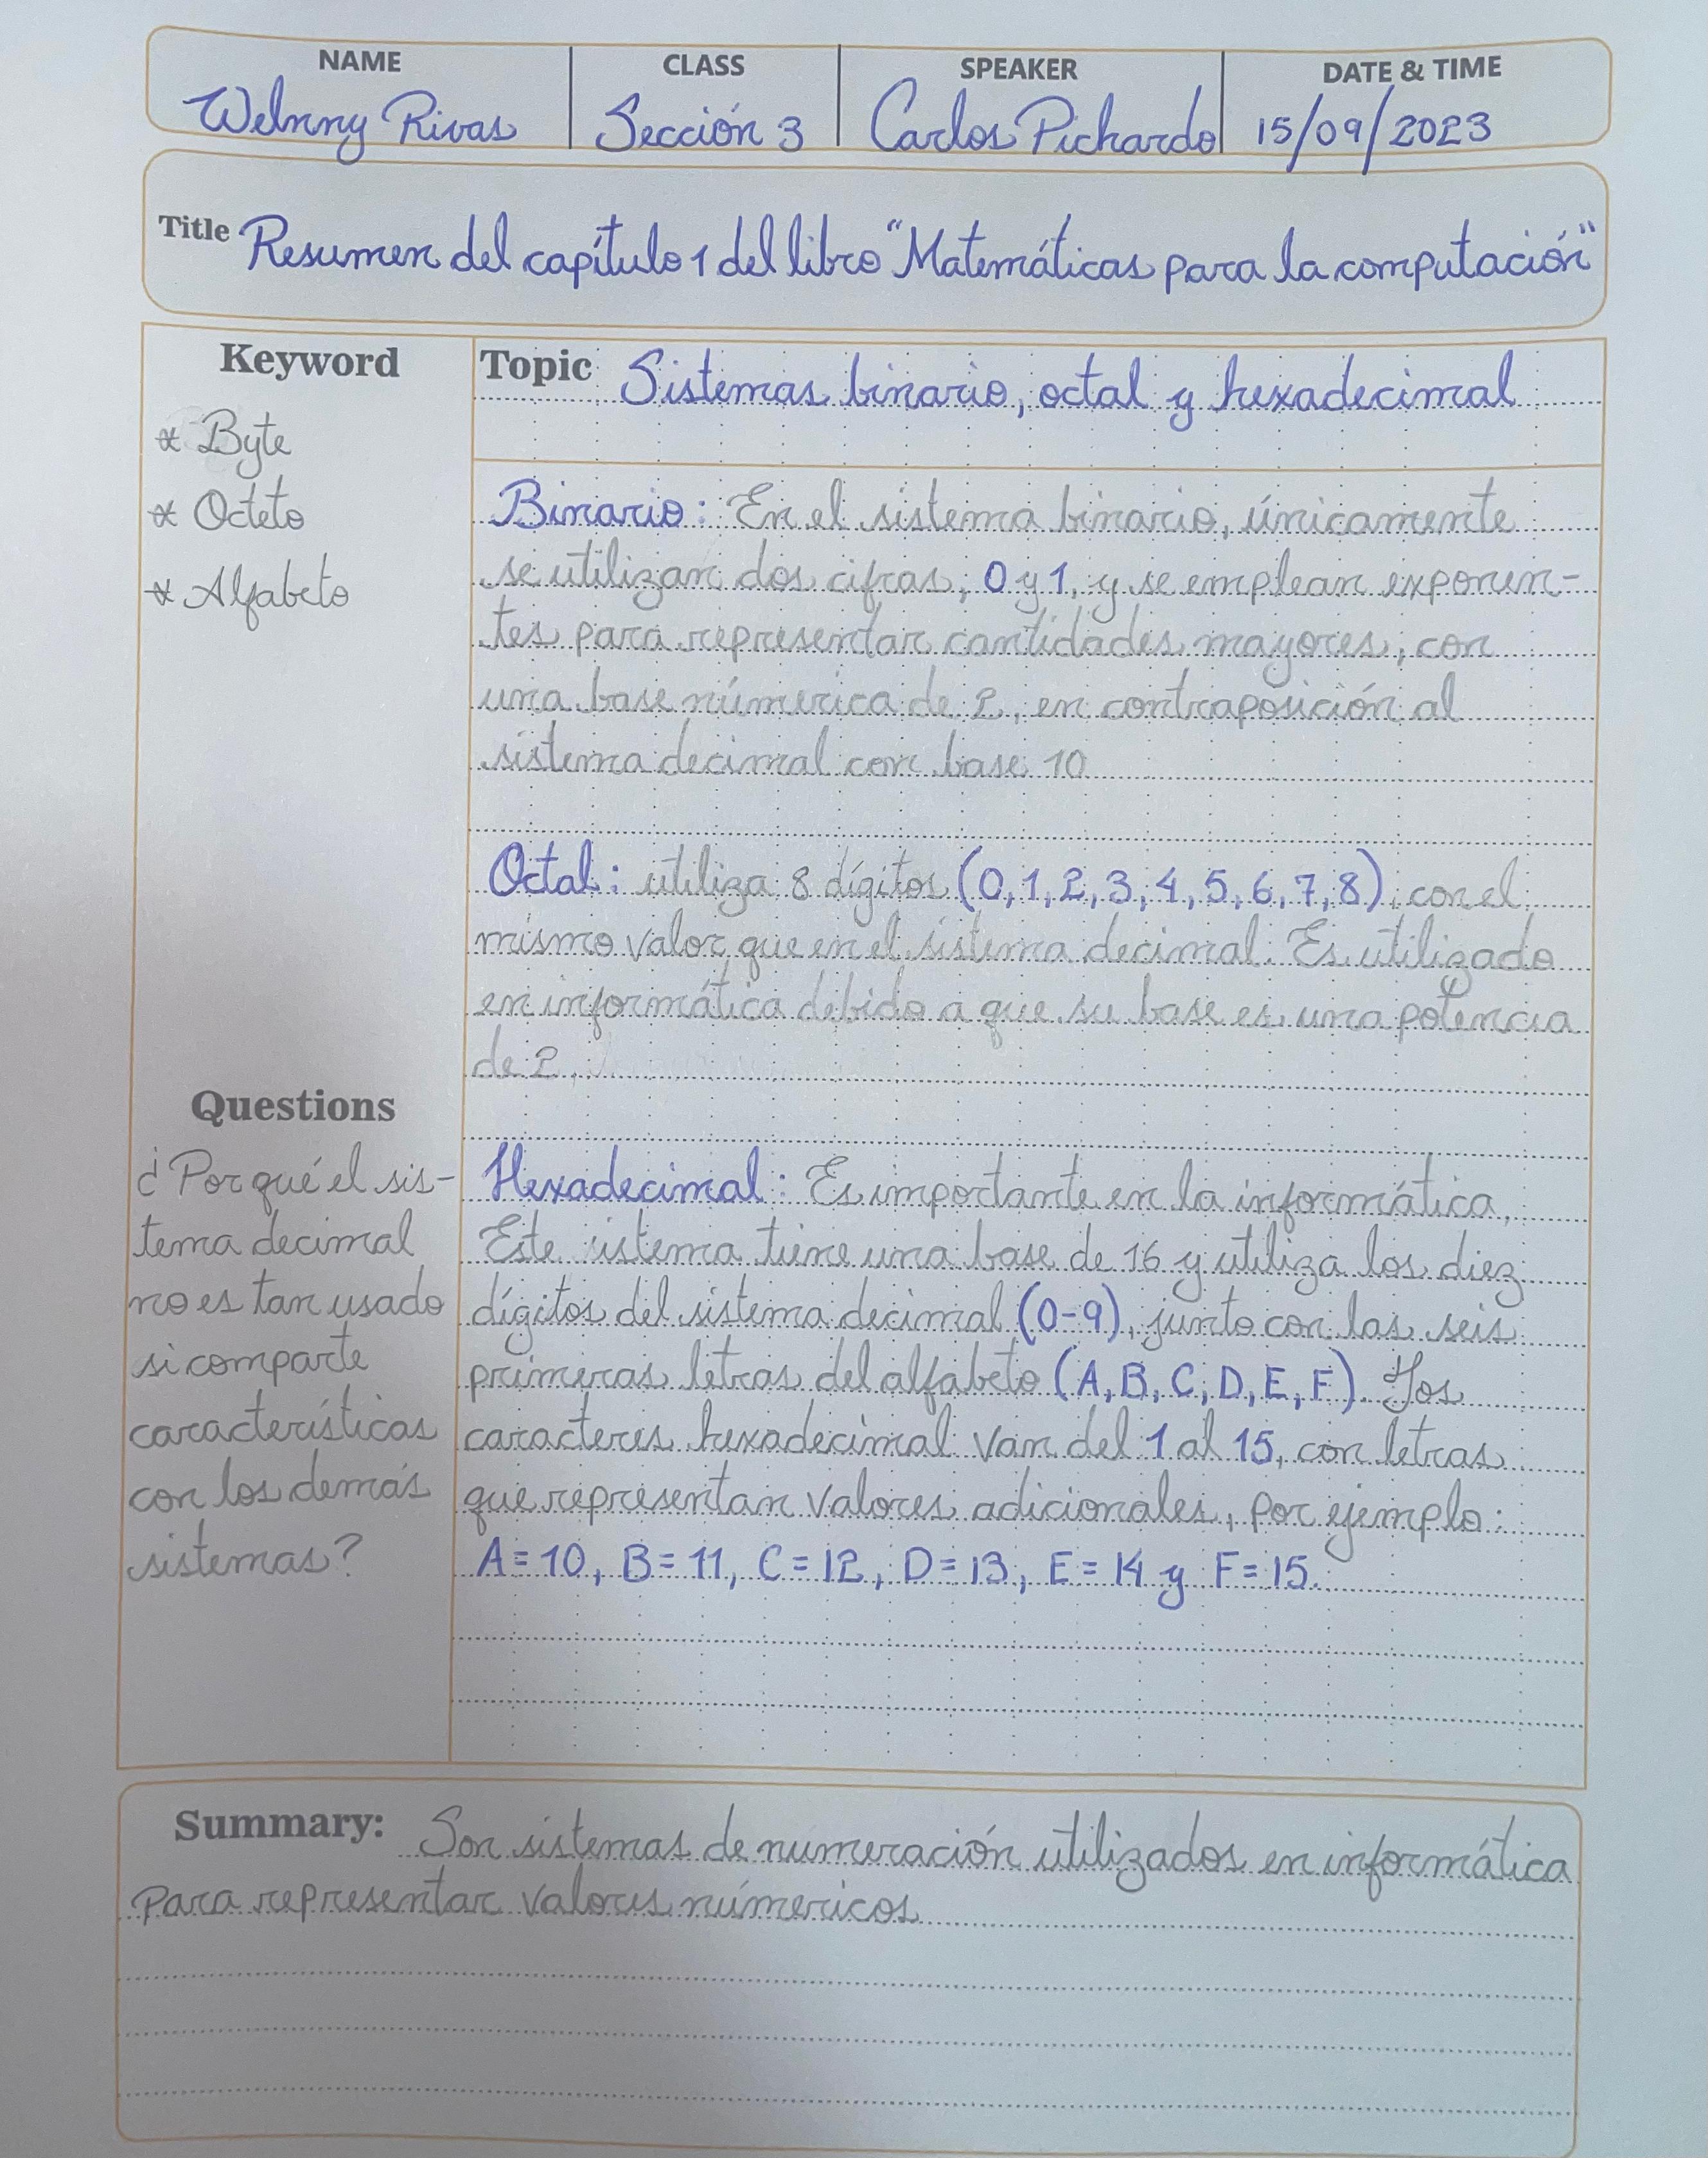 NAME CLASS SPEAKER DATE & TIME
Welnny Rivas Sección 3 Carlos Pichardo 15/09/2023
Title Resumen del capítulo 1 del libro "Matemáticas para la computación"
Keyword
* Byte
* Octeto
* Alfabeto
Questions
¿Por qué el sis-
tema decimal
no es tan usado
si comparte
características
con los demás
sistemas?
Topic Sistemas binario, octal y hexadecimal
Binario: En el sistema binario, únicamente
se utilizan dos cifras, 0 y 1, y se emplean exponen-
tes para representar cantidades mayores, con
una base númerica de 2, en contraposición al
sistema decimal con base 10
Octal: utiliza 8 dígitos (0, 1, 2, 3, 4, 5, 6, 7, 8) con el
mismo valor que en el sistema decimal. Es utilizado
en informática debido a que su base es una potencia
de 2.
Hexadecimal: Es importante en la informática,
Este sistema tiene una base de 16 y utiliza los diez
dígitos del sistema decimal (0-9), junto con las seis
primeras letras del alfabeto (A, B, C, D, E, F). Los
caracteres hexadecimal van del 1 al 15, con letras
que representan valores adicionales, por ejemplo:
A=10, B=11, C=12, D=13, E=14 y F=15.
Summary: Son sistemas de numeración utilizados en informática
para representar valores númericos